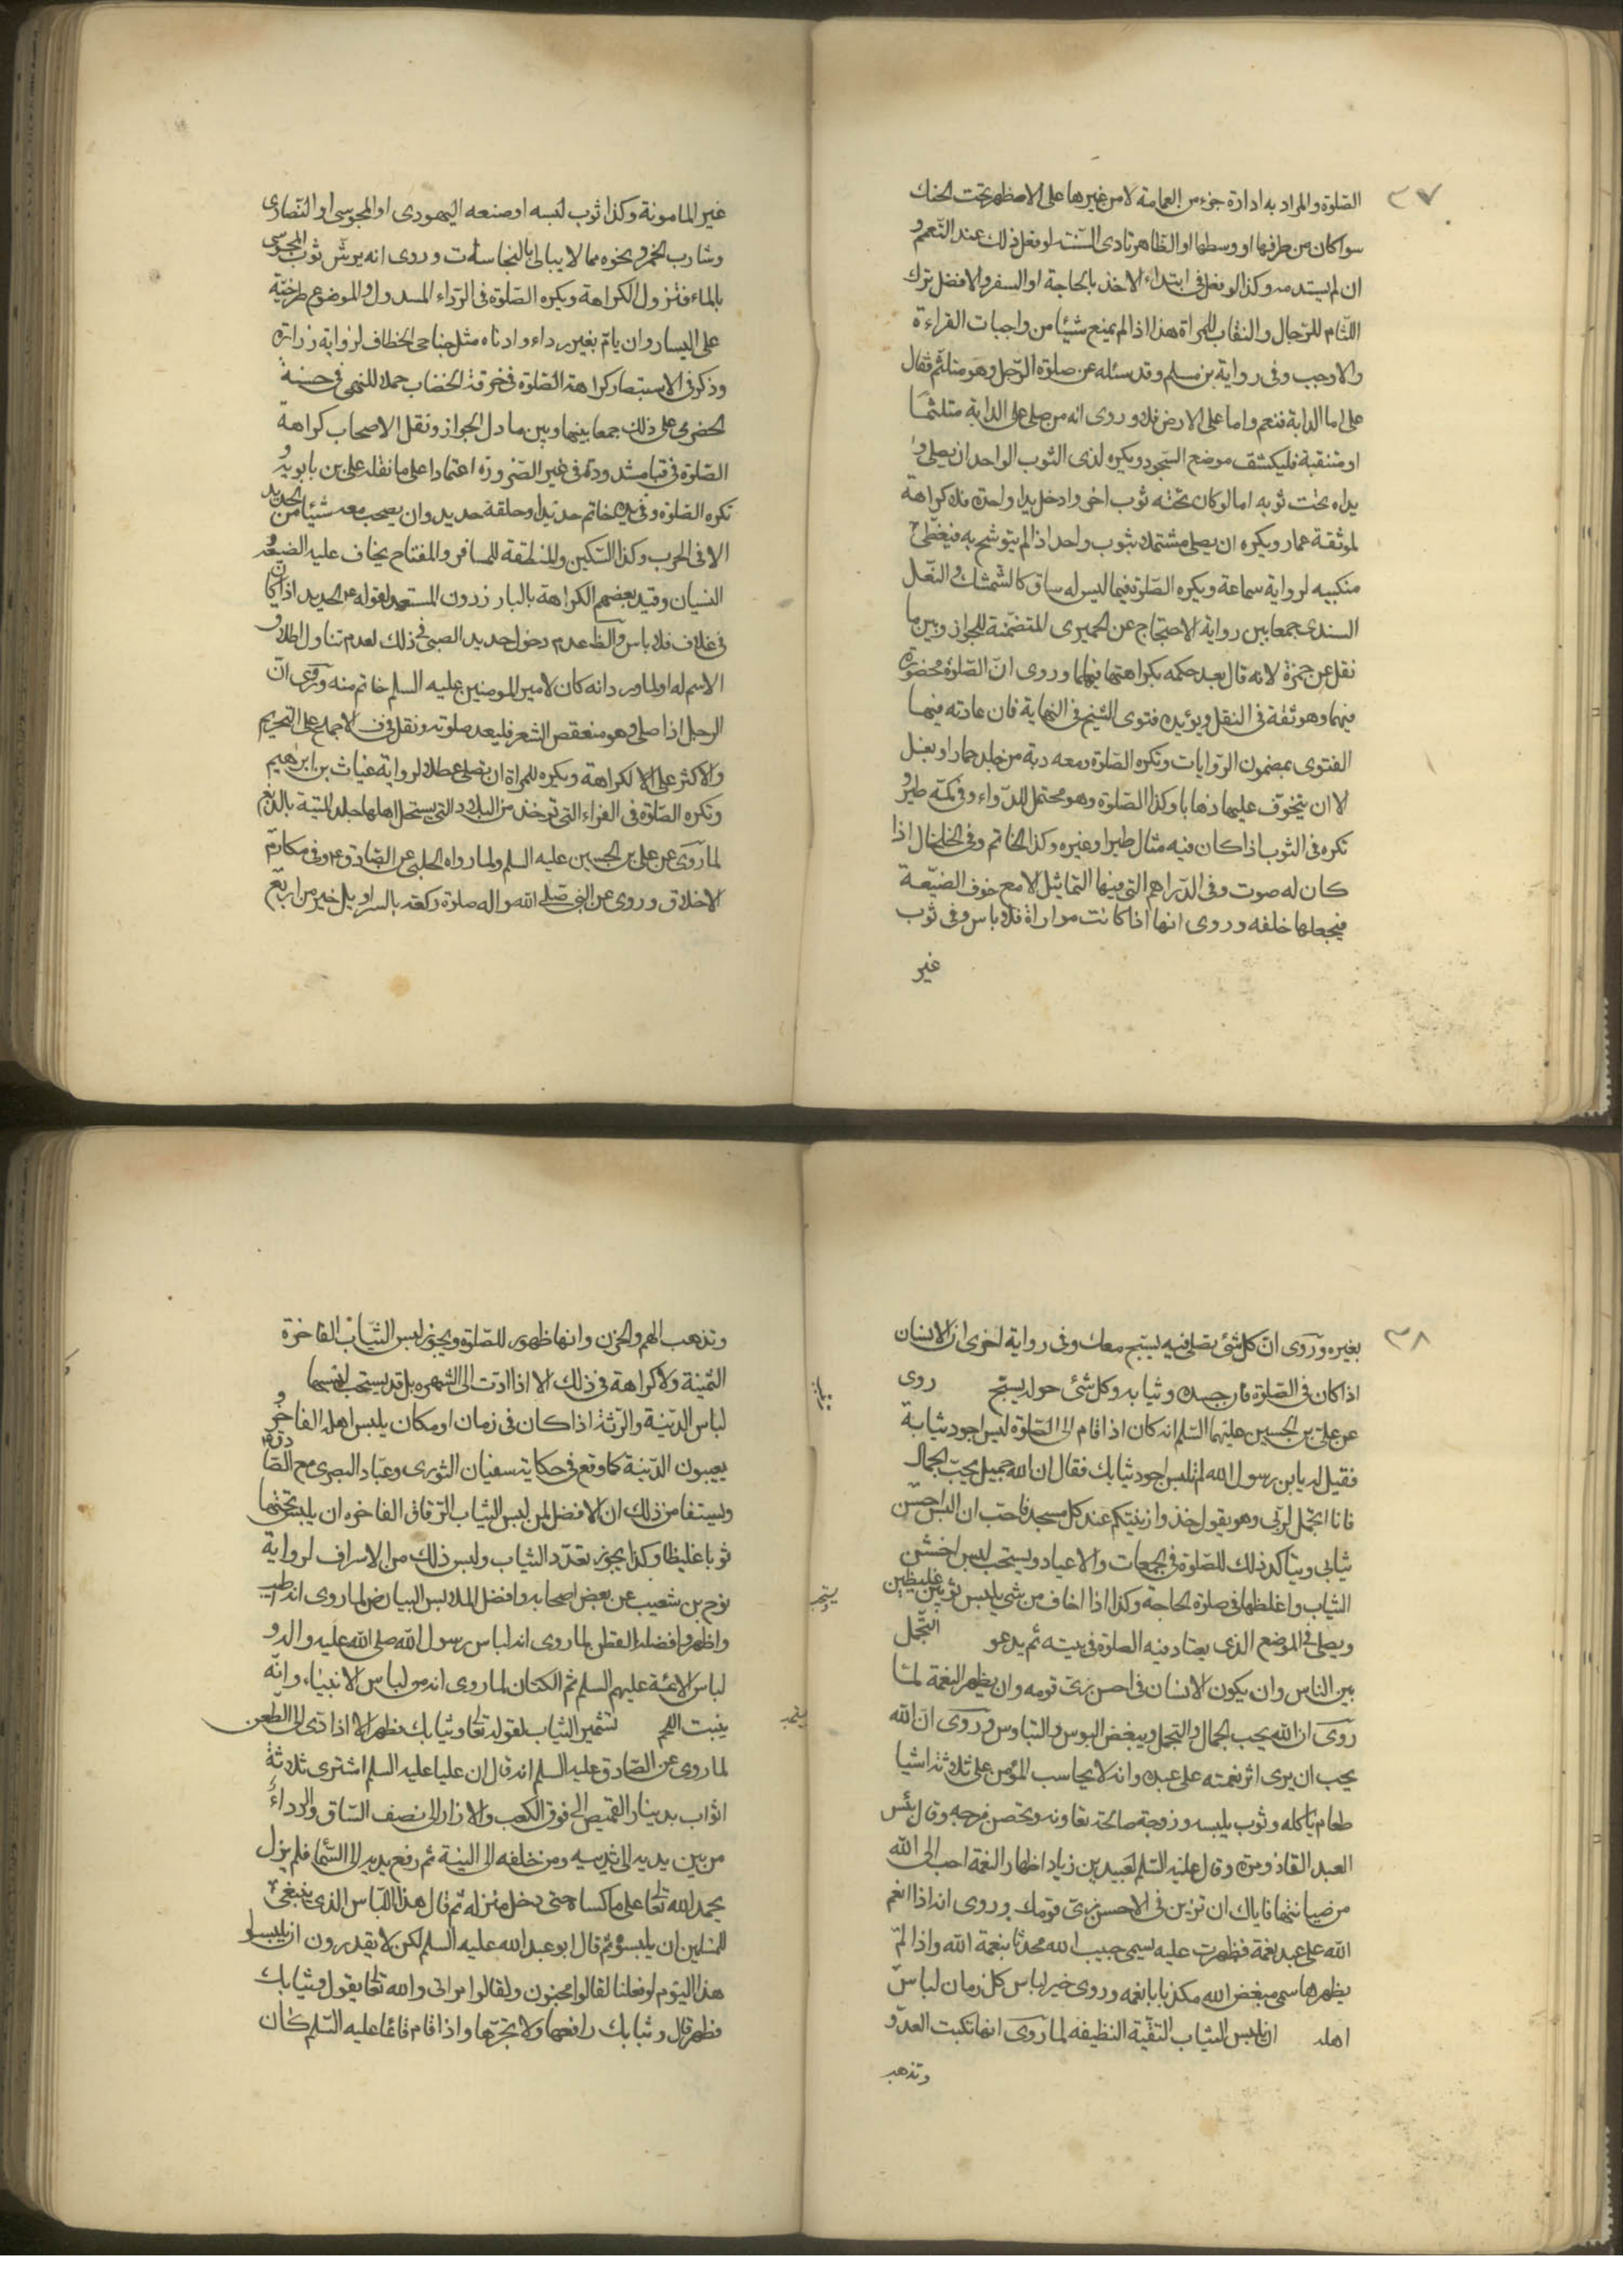 ٣٧
الصلوة والمراد به ادارة جزء من العمامة لا من غيرها على الاظهر تحت الحنك
سوا كان من طرفها او وسطها او الظاهر تادى السنة لو فعل ذلك عند التعمم و
ان لم يستدمه وكذا لو فعل في ابتداء الاخذ بالحاجة او السفر والافضل ترك
اللثام للرجال والنقاب للمراة هذا اذا لم يمنع شيئا من واجبات القراءة
والا وجب وفى رواية بن مسلم وقد سئله عن صلوة الرجل وهو متلثم فقال
على اما الدابة فنعم واما على الارض فلا وروى انه من صلى على الدابة متلثما
او متنقبة فليكشف موضع السجود ويكره لذى الثوب الواحد ان يصلى و
يداه تحت ثوبه اما لو كان تحته ثوب اخر وادخل يدا واحدة فلا كراهة
لموثقة عمار ويكره ان يصلى مشتملا بثوب واحد اذا لم يتوشح به فيغطى
منكبيه لرواية سماعة ويكره الصلوة فيما ليس له ساق كالشمشك والنعل
السندى جمعا بين رواية الاحتجاج عن الحميرى المتضمنة للجواز وبين ما
نقل عن حمزة لانه قال بعد حكمه بكراهتها فيهما وروى ان الصلوة محضورة
فيهما وهو ثقة في النقل ويؤيده فتوى الشيخ في النهاية فان عادته فيها
الفتوى بمضمون الروايات وتكره الصلوة ومعه دبة من جلد حمار او بغل
الا ان يتخوف عليها ذهابا وكذا الصلوة وهو محتمل للدواء وفى كمه طير و
تكره فى الثوب اذا كان فيه مثال طير او غيره وكذا الخاتم وفى الخلخال اذا
كان له صوت وفى الدراهم التى فيها التماثيل الا مع خوف الضيعة
فيجعلها خلفه وروى انها اذا كانت مواراة فلا باس وفى ثوب
غير
غير المامونة وكذا ثوب لبسه او صنعه اليهودى او المجوسى او النصارى
وشارب الخمر ونحوه مما لا يبالى بالنجاسات وروى انه يرش ثوب المجوسى
بالماء فتزول الكراهة ويكره الصلوة فى الرداء المسدول والموضوع طرفيه
على اليسار وان ياتم بغير رداء وادناه مثل جناحى الخطاف لرواية زرارة
وذكر فى الاستبصار كراهة الصلوة فى خرقة الخضاب حملا للنهى فى حسنة
الحضرمى على ذلك جمعا بينها وبين ما دل الجواز ونقل الاصحاب كراهة
الصلوة فى قبا مشدود في غير الضرورة اعتمادا على ما نقله على بن بابويه و
تكره الصلوة وفى يده خاتم حديد او حلقة حديد وان يصحب معه شيئا من الحديد
الا فى الحرب وكذا السكين والمنطقة للمسافر والمفتاح يخاف عليه الضيعة و
النسيان وقيد بعضهم الكراهة بالبارز دون المستور لقوله عن الحديد اذا كان
فى غلاف فلا باس والظ عدم دخول حديد الصبى فى ذلك لعدم تناول اطلاق
الاسم له او لما ورد انه كان لامير المومنين عليه السلم خاتم منه وروى ان
الرجل اذا صلى وهو منعقص الشعر فليعد صلوته ونقل في ف الاجماع على التحريم
والاكثر على الكراهة ويكره للمراة ان تصلى عطلا لرواية غياث بن ابرهيم
وتكره الصلوة فى الفراء التى تؤخذ من البلاد التى يستحل اهلها جلد الميتة بالدبغ
لما روى عن على بن الحسين عليه السلم ولما رواه الحلبى عن الصادق ع وفى مكارم
الاخلاق وروى عن النبى صلى الله واله صلوة ركعة بالسراويل خير من اربع
٣٨
بغيره وروى ان كل شئ يصلى فيه يسبح معك وفى رواية اخرى ان الانسان
اذا كان فى الصلوة فان جسده وثيابه وكل شئ حوله يسبح روى
عن على بن الحسين عليهما السلم انه كان اذا قام الى الصلوة لبس اجود ثيابه
فقيل له يابن رسول الله لم تلبس اجود ثيابك فقال ان الله جميل يحب الجمال
فانا اتجمل لربى وهو يقول خذوا زينتكم عند كل مسجد فاحب ان البس احسن
ثيابى ويتاكد ذلك للصلوة فى الجمعات والاعياد ويستحب لبس اخشن
الثياب واغلظها فى صلوة الحاجة وكذا اذا اخاف من شى يلبس ثوبين غليظين
ويصلى فى الموضع الذى يعتاد فيه الصلوة فى بيته ثم يدعو التجمل
بين الناس وان يكون الانسان فى احسن زى قومه وان يظهر النعمة لما
روى ان الله يحب الجمال والتجمل ويبغض البوس والتباوس وروى ان الله
يحب ان يرى اثر نعمته على عبده وانه لا يحاسب المؤمن على ثلاثة اشيا
طعام ياكله وثوب يلبسه وزوجة صالحة تعاونه وتحصن فرجه وق بئس
العبد القاذورة وق عليه السلم لعبيد بن زياد اظهار النعمة احب الى الله
من صيانتها فاياك ان تزين فى الا حسن زى قومك وروى انه اذا انعم
الله على عبد نعمة فظهرت عليه يسمى حبيب الله محدثا بنعمة الله واذا لم
يظهرها سمى مبغض الله مكذبا بانعمه وروى خير لباس كل زمان لباس
اهله ان يلبس الثياب النقية النظيفه لما روى انها تكبت العدو
وتذهب
يستحب
وتذهب الهم والحزن وانها طهور للصلوة ويجوز لبس الثياب الفاخرة
الثمينة ولا كراهة فى ذلك الا اذا ادت الى الشهره بل قد يستحب
لباس الدنية والرثة اذا كان فى زمان او مكان يلبس اهله الفاخر و
يعيبون الدنية كما وقع فى حكاية سفيان الثورى وعباد البصرى مع الصادق ع
ويستفا من ذلك ان الافضل لمن لبس الثياب الرقاق الفاخره ان يلبس تحتها
ثوبا غليظا وكذا يجوز تعدد الثياب وليس ذلك من الاسراف لرواية
نوح بن شعيب عن بعض اصحابه وافضل الملابس البياض لما روى انه اطيب
واطهر وافضله القطن لما روى انه لباس رسول الله صلى الله عليه واله و
لباس الائمة عليهم السلم ثم الكتان لما روى انه من لباس الانبياء وانه
ينبت اللحم تشمير الثياب لقوله تعا وثيابك فطهر الا اذا ادى الى الطعن
لما روى عن الصادق عليه السلم انه قال ان عليا عليه السلم اشترى ثلاثة
اثواب بدينار القميص الى فوق الكعب والازار الى نصف الساق والرداء
من بين يديه الى ثدييه ومن خلفه الى الييه ثم رفع يديه الى السما فلم يزل
يحمد الله تعا على ما كساه حتى دخل منزله ثم قال هذا اللباس الذى ينبغى
للمسلمين ان يلبسوه ثم قال ابو عبد الله عليه السلم لكن لا يقدرون ان يلبسوا
هذا اليوم لو فعلنا لقالوا مجنون ولقالوا مرائى والله تعا يقول وثيابك
فطهر قال وثيابك رافعها ولا تجرها واذا قام قائمنا عليه السلم كان